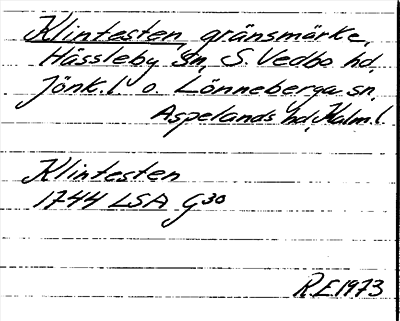 Klintesten, gränsmärke,
Hässleby sn, S. Vedbo hd,
Jönk.l o. Lönneberga sn,
Aspelands hd, Kalm.l
Klintesten
1744 LSA G30
R.E 1973